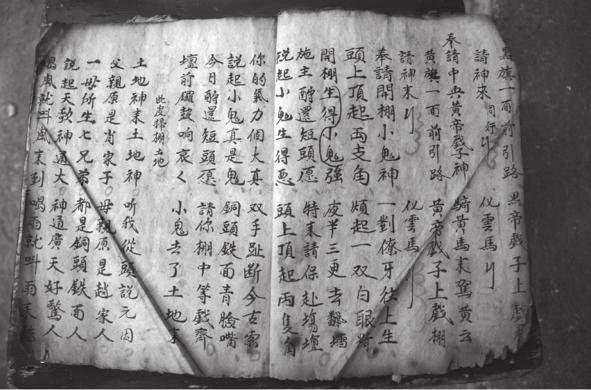 黑旗一面前引路 黑帝戲子上戲棚
請神來 同行刂 仩雲馬刂
奉請中央黃帝戲子神 騎黃馬來駕黃云
黃旗一面前引路 黃帝戲子上戲棚
請神來刂 仩雲馬刂
奉請開棚小鬼神 一對僚牙往上生
頭上頂起五支角 煩起一双白眼
開棚生得小鬼強 皮半三更去翻
施主酧還短頭愿 特來請保赴塲壇
說起小鬼生得惡 頭上頂起兩隻角
你的氣力個大真 双手趾断今古
說起小鬼真是鬼 銅頭鉄面青臉嘴
今日酧還短頭愿 請你棚中等戲齊
壇前鑼鼓响哀哀 小鬼去了土地來
此處掃棚土地
土地神來土地神 听我從頭說元因
父親原是肖家子 母親原是趙家人
一母所生七兄弟 都是銅頭鉄面人
說起天歌神通大 神通廣大好驚人
喝風就叫風來到 喝雨就叫雨來